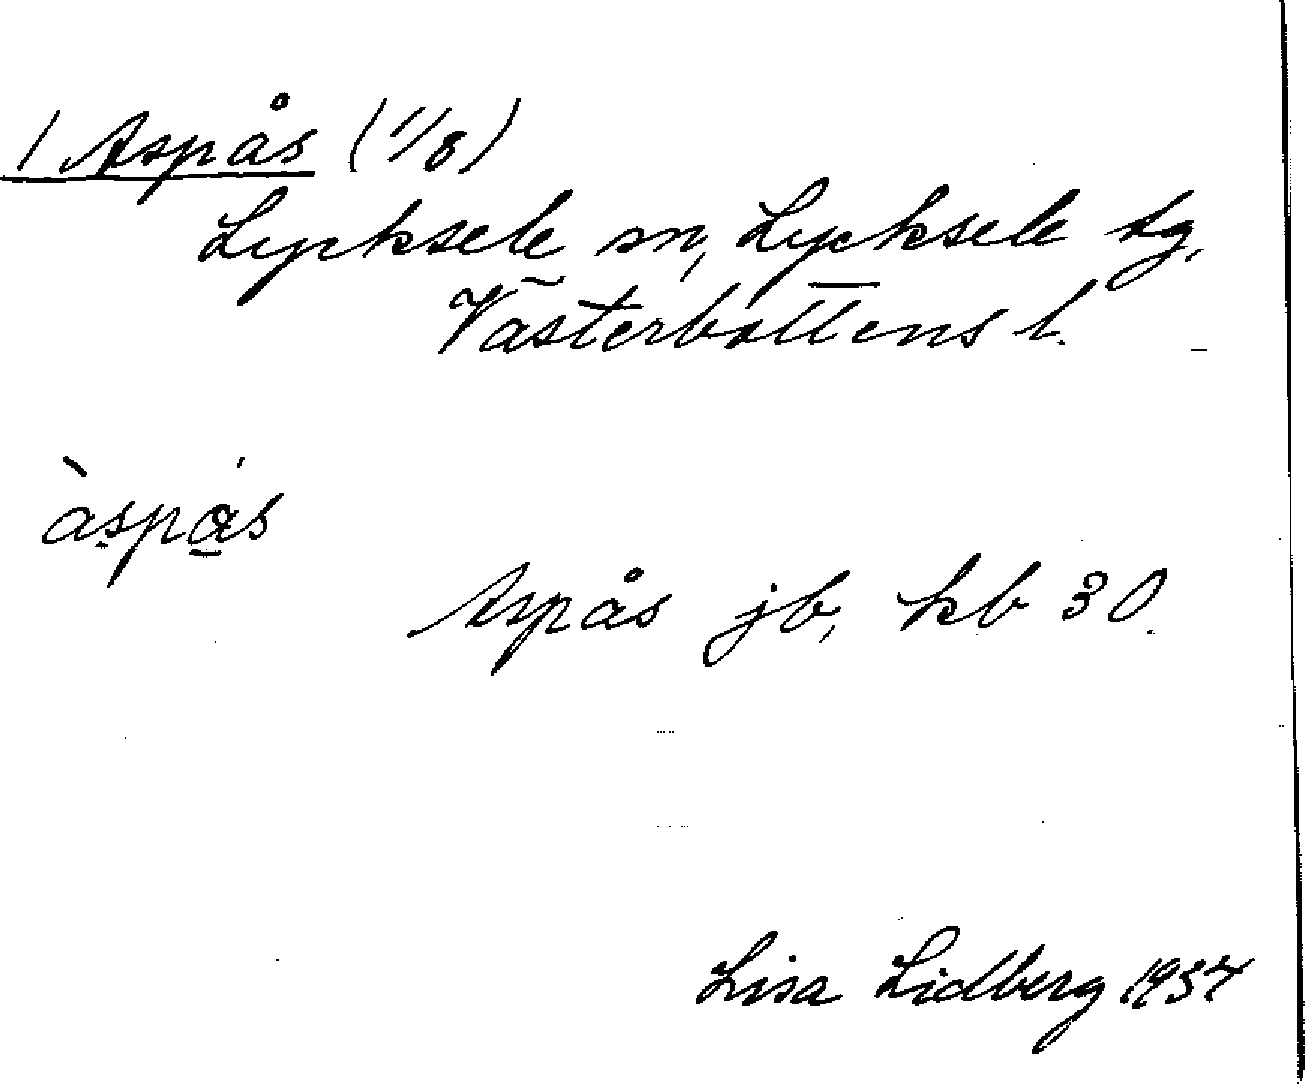 1 Aspås (1/8)
Lycksele sn, Lycksele tg,
Västerbottens l.
àspás
Aspås jb, kb 30.
Lisa Lidberg 1937